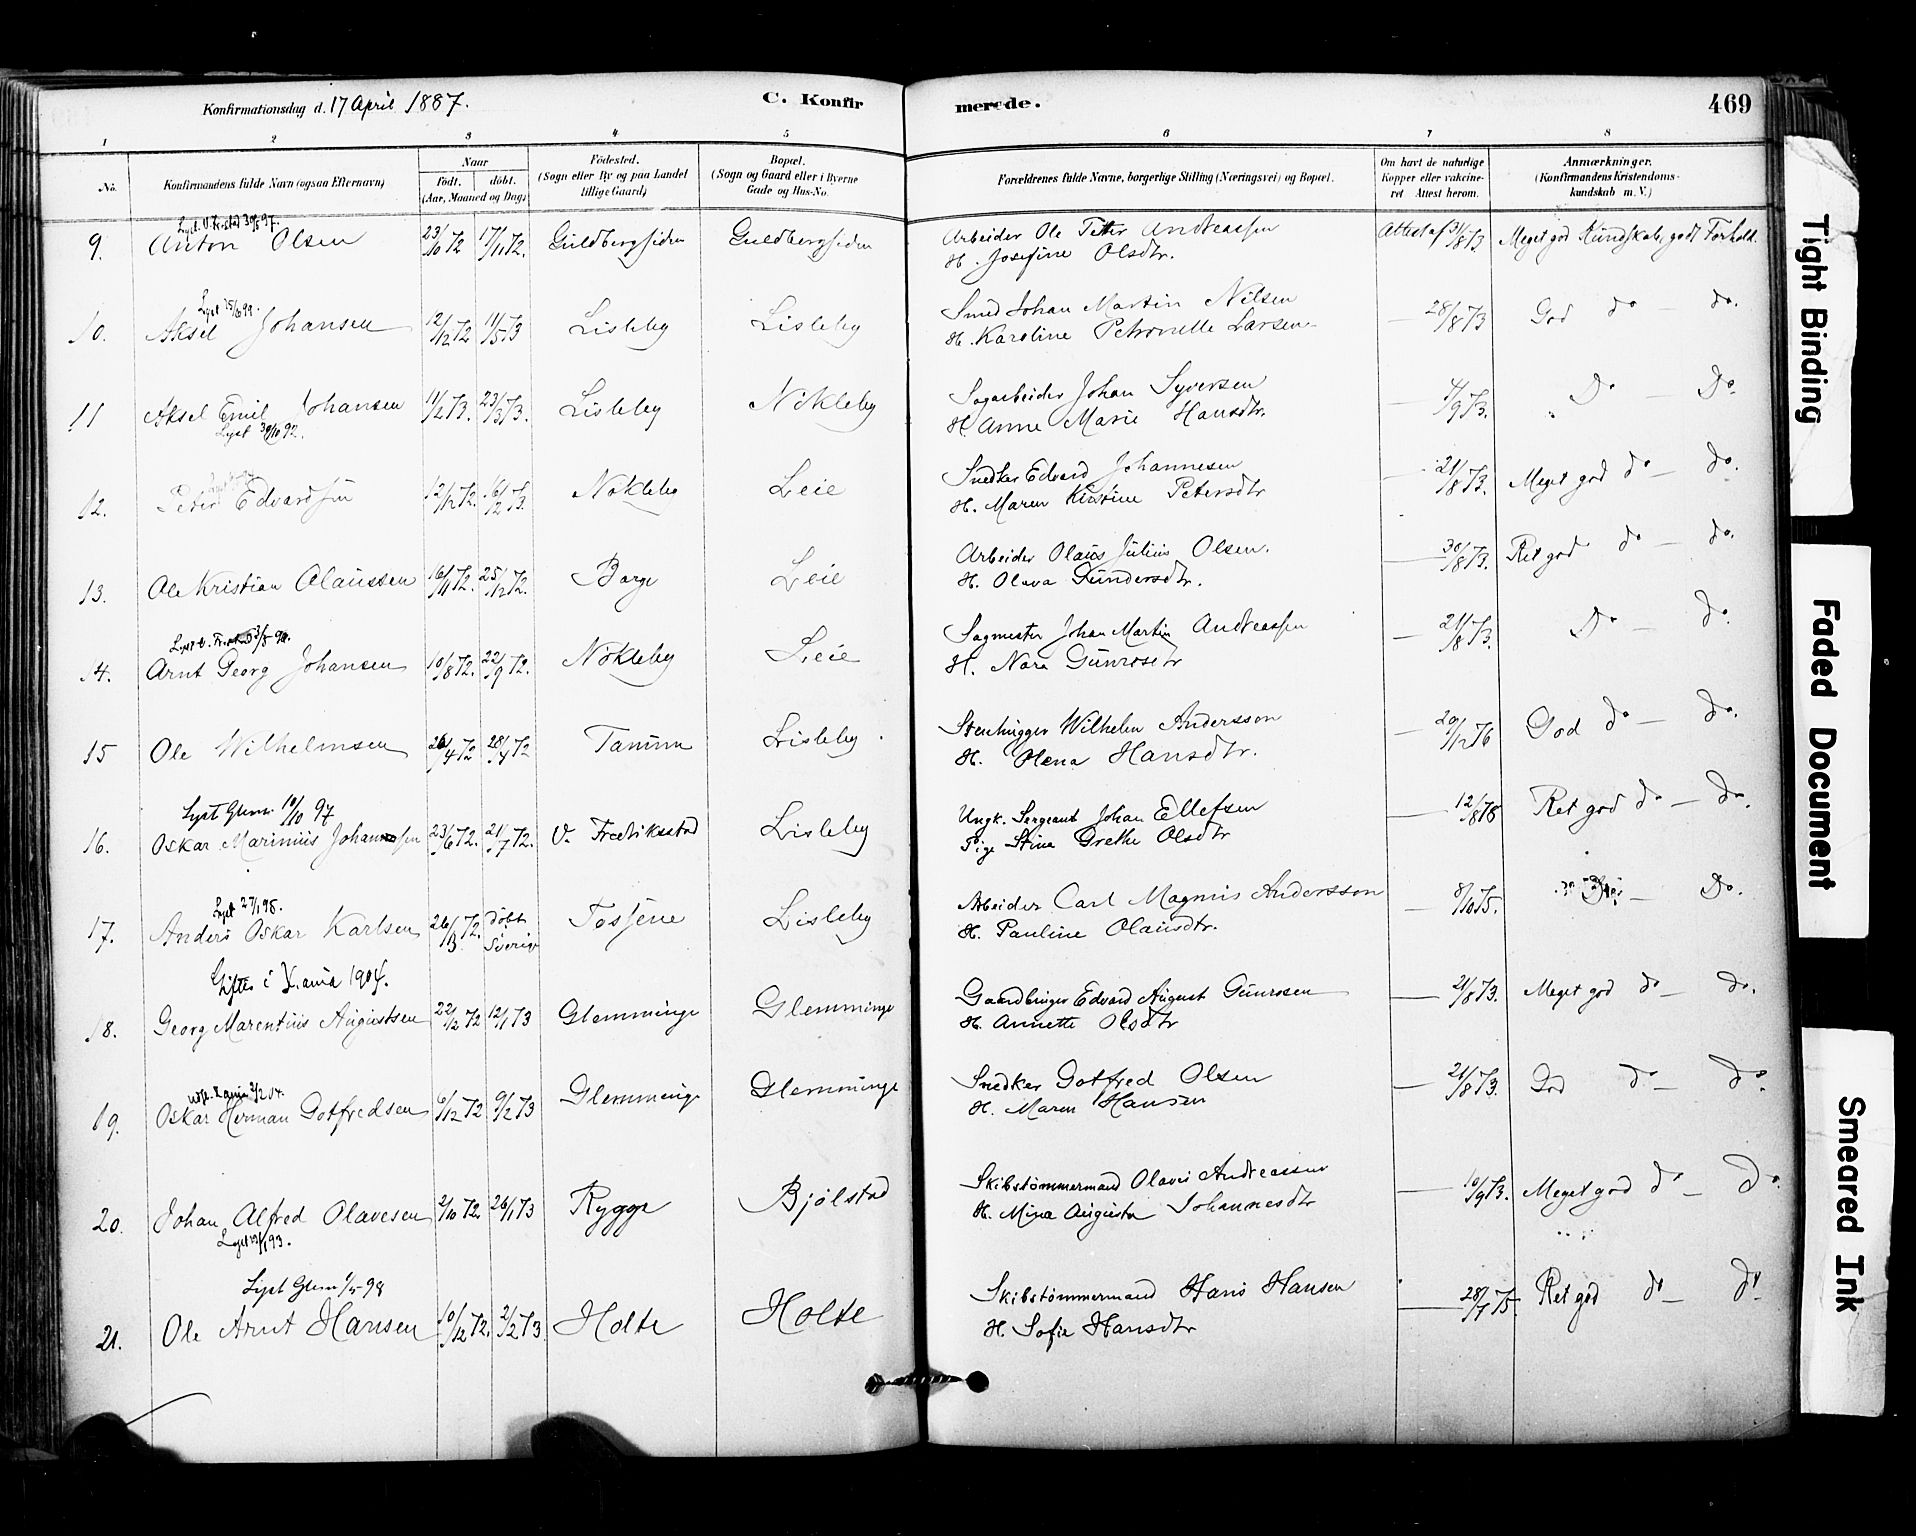 Konfirmationsdag d. 17 April 1887. C. Konfirmerede. 469
1 2 3 4 5 6 7 8
No. Konfirmandens fulde Navn (ogsaa Efternavn) Naar født. døbt. (Aar, Maaned og Dag) Fødested. (Sogn eller By og paa Landet tillige Gaard) Bopæl. (Sogn og Gaard eller i Byerne Gade og Hus-No. Forældrenes fulde Navne, borgerlige Stilling (Næringsvei) og Bopæl. Om havt de naturlige Kopper eller vaccineret Attest herom. Anmærkninger. (Konfirmandens Kristendomskundskab m. V.)
9. Anton Olsen 23/10 72 17/11 72. Guldbergsiden Guldbergsiden Arbeider Ole Peter Andreassen Attest af 31/8 73. Meget god Kundskab, godt Forhold.
H. Josefine Olsdtr.
Lyst 15/6 99.
10. Aksel Johansen 12/12 72 11/5 73 Lisleby Lisleby Smed Johan Martin Nilsen — 28/8 73 God do — do.
H. Karoline Petronelle Larsen
11 Aksel Emil Johansen 11/2 73. 23/3 73. Lisleby Nokleby Sagarbeider Johan Syversen — 4/9 73. Do — Do
Lyst 30/10 92. H. Anne Marie Hansdtr.
12. Peter Edvardsen 12/12 72. 16/2 73. Nokleby Leie Snedker Edvard Johannesen — 21/8 73. Meget god do — do.
H. Maren Kristine Petersdtr
13. Ole Kristian Olaussen 16/11 72. 25/12 72. Borge Leie Arbeider Olaus Julius Olsen. — 30/8 73. Ret god do — do.
H. Olava Gundersdtr.
14. Arnt Georg Johansen 10/8 72. 22/9 72. Nokleby Leie Sagmester Johan Martin Andreassen — 21/8 73. Do — do.
H. Nora Gunrosdtr
15 Ole Wilhelmsen 26/4 72 28/4 72 Tanum Lisleby. Stenhugger Wilhelm Andersson — 20/12 76 God do — do.
H. Olena Hansdtr.
Lyst Glem. 10/10 97
16. Oskar Marinius Johansen 23/6 72. 21/7 72. V. Fredriksstad Lisleby Ungk. Sergeant Johan Ellefsen — 12/8 78 Ret god do — do.
Pige Stina Grethe Olsdtr
Lyst 27/1 98.
17. Anders Oskar Karlsen 26/3 72. Døbt Sverige Tossene Lisleby Arbeider Carl Magnus Andersson — 8/10 75. Do — Do.
H. Pauline Olausdtr.
Giftes i Xania 1904.
18. Georg Marentius Augustsen 22/12 72 12/1 73 Glemminge Glemminge Gaardbruger Edvard August Gunrosen — 21/8 73. Meget god do — do.
H. Annette Olsdtr
19. Oskar Herman Gotfredsen 6/12 72 9/2 73 Glemminge Glemminge Snedker Gotfred Olsen — 21/8 73. God do — do.
H. Maren Hansen
20. Johan Alfred Olavesen 2/10 72. 26/1 73 Rygge Bjølstad Skibstømmermand Olaves Andreassen — 10/9 73. Meget god do — do.
H. Mina Augusta Johannesdtr
Lyst Glem 1/5 98
21. Ole Arnt Hansen 10/12 72. 2/2 73. Holte Holte Skibstømmermand Hans Hansen — 28/7 75. Ret god do — do.
H. Sofie Hansdtr
Tight Binding
Faded Document
Smeared Ink